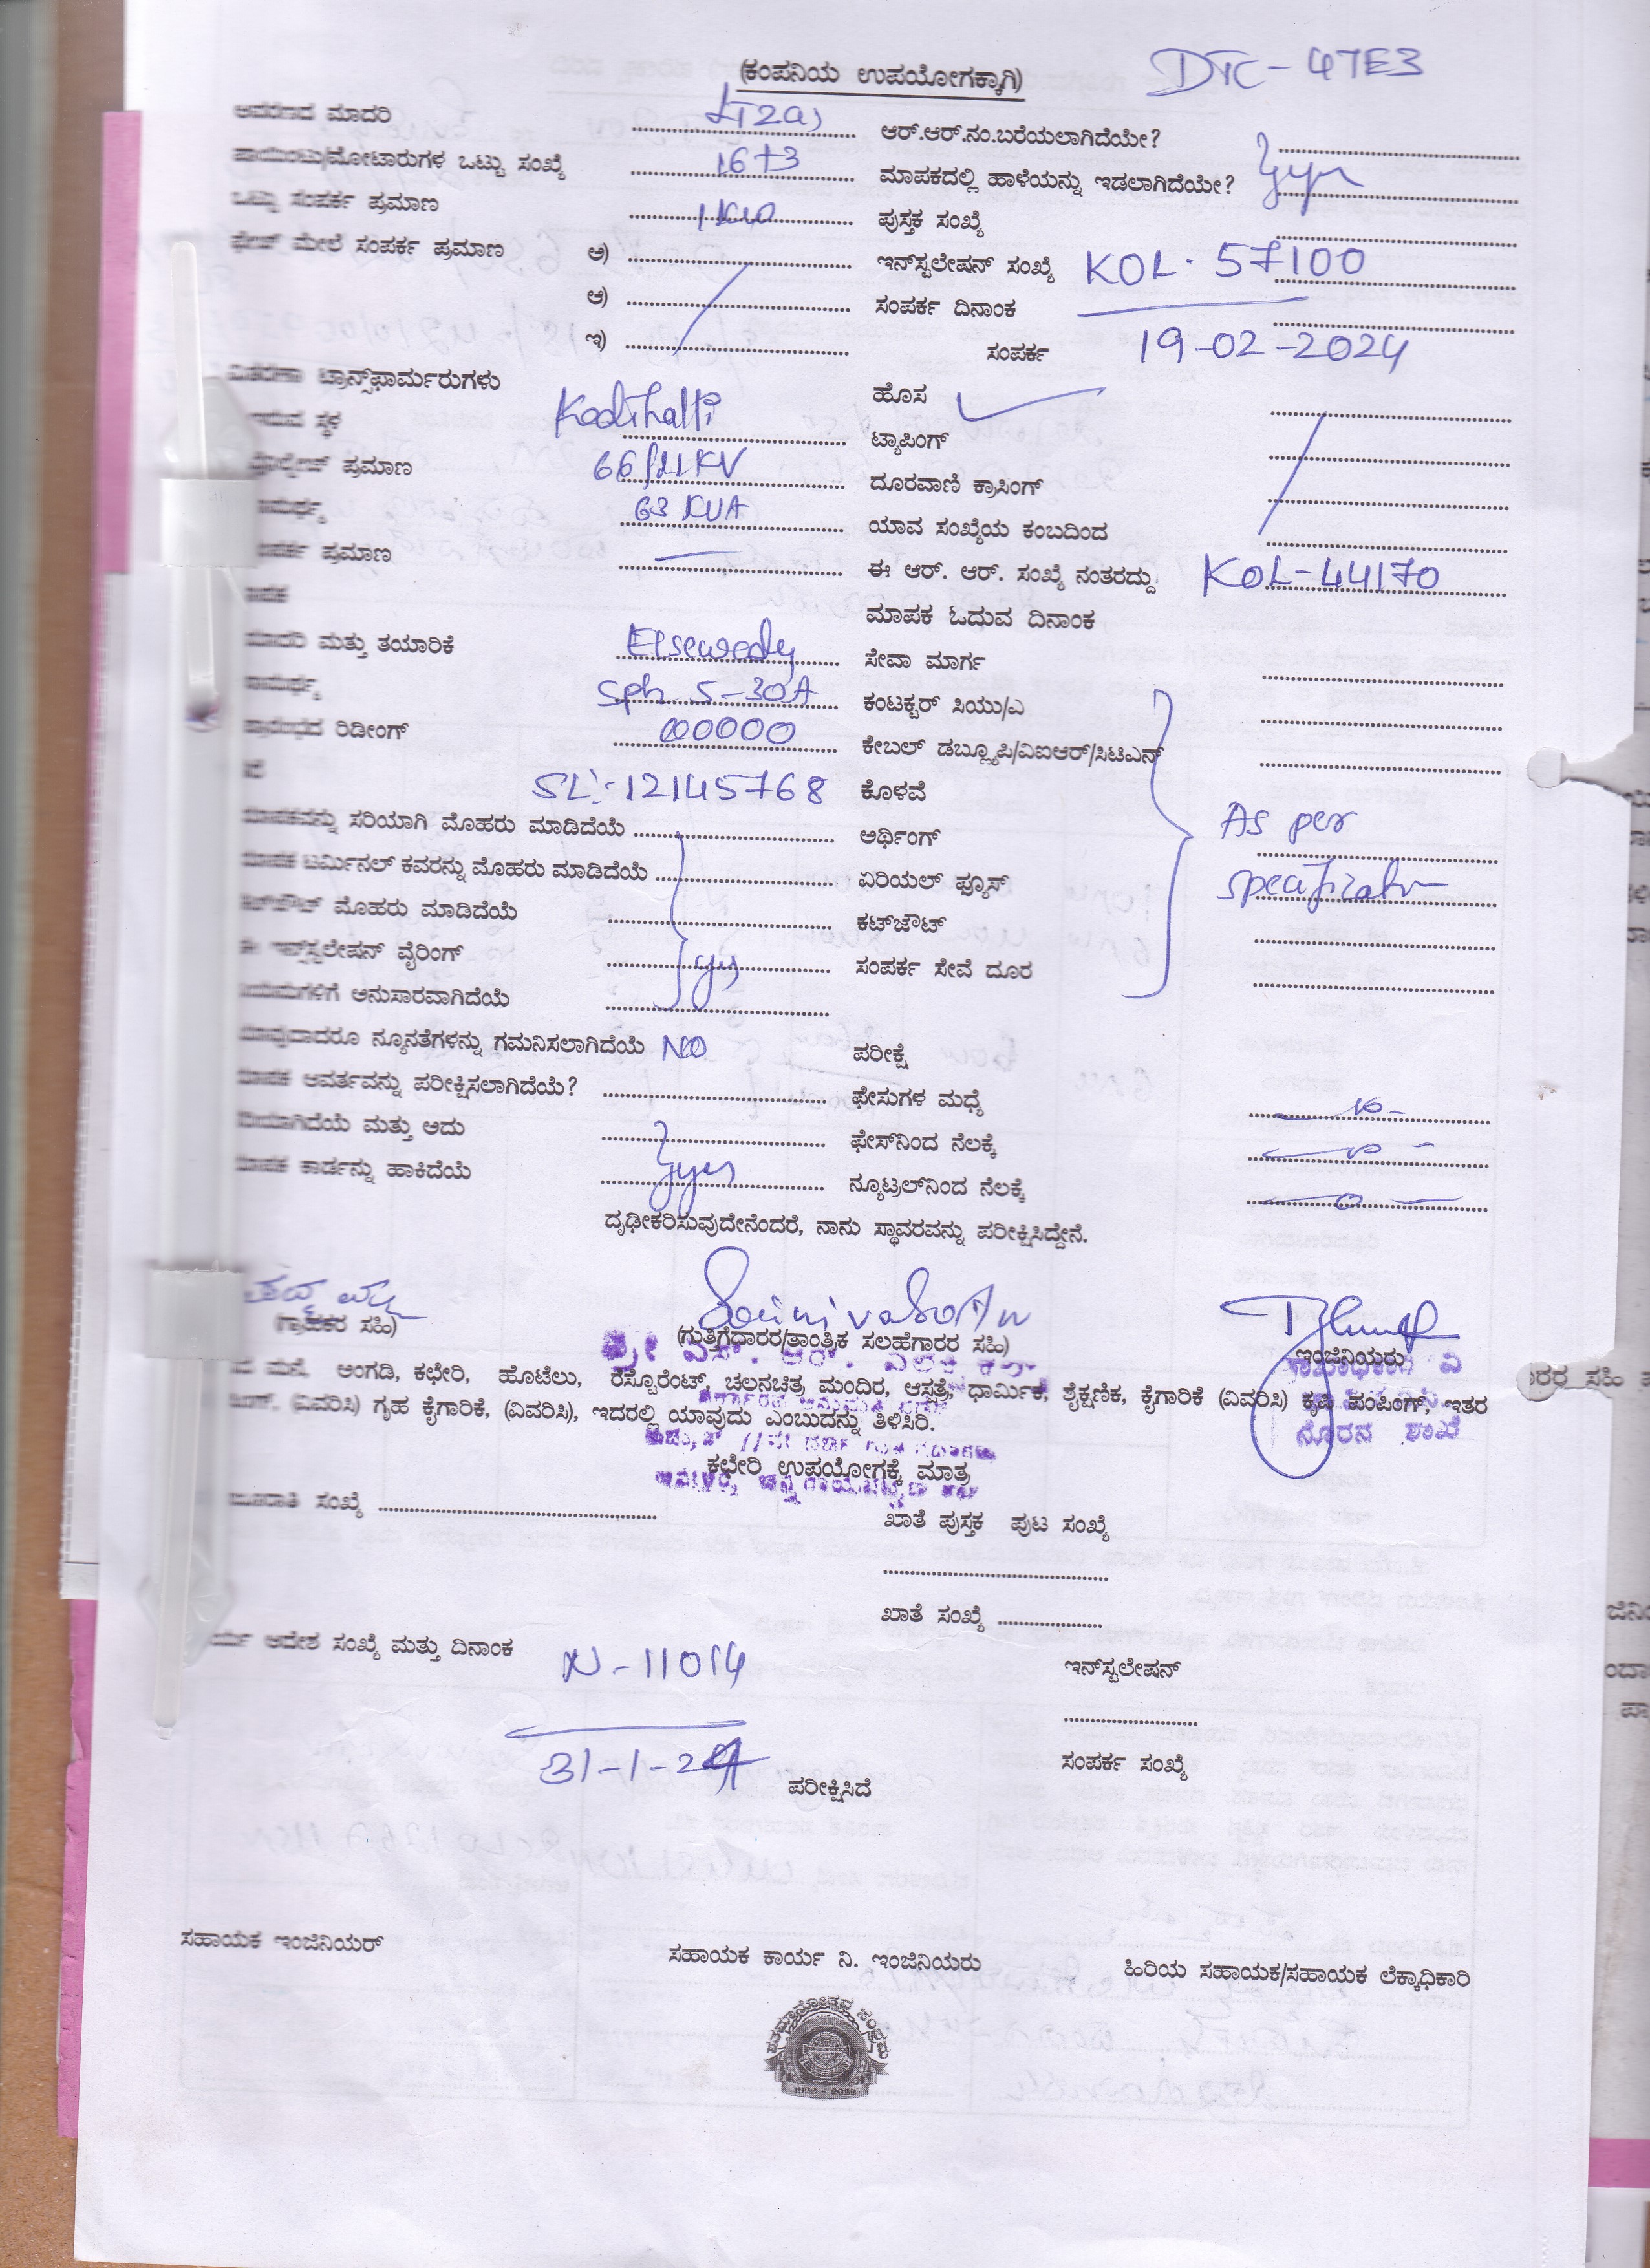 (ಕಂಪನಿಯ ಉಪಯೋಗಕ್ಕಾಗಿ) DTC-47E3
ಆವರಣದ ಮಾದರಿ LT2a) ಆರ್.ಆರ್.ನಂ.ಬರೆಯಲಾಗಿದೆಯೇ?
ಪಾಯಿಂಟು/ಮೋಟಾರುಗಳ ಒಟ್ಟು ಸಂಖ್ಯೆ 16+3 ಮಾಪಕದಲ್ಲಿ ಹಾಳೆಯನ್ನು ಇಡಲಾಗಿದೆಯೇ? yes
ಒಟ್ಟು ಸಂಪರ್ಕ ಪ್ರಮಾಣ 1KW ಪುಸ್ತಕ ಸಂಖ್ಯೆ
ಫೇಜ್ ಮೇಲೆ ಸಂಪರ್ಕ ಪ್ರಮಾಣ ಅ) ಇನ್‌ಸ್ಟಲೇಷನ್ ಸಂಖ್ಯೆ KOL-57100
ಆ) ಸಂಪರ್ಕ ದಿನಾಂಕ
ಇ) ಸಂಪರ್ಕ 19-02-2024
ವಿತರಣಾ ಟ್ರಾನ್ಸ್‌ಫಾರ್ಮರುಗಳು ಹೊಸ
ಸ್ಥಳ Kodihalli ಟ್ಯಾಪಿಂಗ್
ಪ್ರಮಾಣ 66/11KV ದೂರವಾಣಿ ಕ್ರಾಸಿಂಗ್
63 KVA ಯಾವ ಸಂಖ್ಯೆಯ ಕಂಬದಿಂದ
ಪ್ರಮಾಣ ಈ ಆರ್. ಆರ್. ಸಂಖ್ಯೆ ನಂತರದ್ದು KOL-44170
ಮಾಪಕ ಓದುವ ದಿನಾಂಕ
ಮಾದರಿ ಮತ್ತು ತಯಾರಿಕೆ Elsewedy ಸೇವಾ ಮಾರ್ಗ
Sph 5-30A ಕಂಟಕ್ಟರ್ ಸಿಯು/ಎ
ರಿಡೀಂಗ್ 00000 ಕೇಬಲ್ ಡಬ್ಲ್ಯೂಪಿ/ವಿಐಆರ್/ಸಿಟಿಎನ್
SL:-12145768 ಕೊಳವೆ
ಮಾಪಕವನ್ನು ಸರಿಯಾಗಿ ಮೊಹರು ಮಾಡಿದೆಯೆ ಅರ್ಥಿಂಗ್ As per
ಮಾಪಕ ಟರ್ಮಿನಲ್ ಕವರನ್ನು ಮೊಹರು ಮಾಡಿದೆಯೆ ಏರಿಯಲ್ ಫ್ಯೂಸ್
ಕಟ್‌ಔಟ್ ಮೊಹರು ಮಾಡಿದೆಯೆ ಕಟ್‌ಔಟ್
ಈ ಇನ್ಸ್‌ಟಲೇಷನ್ ವೈರಿಂಗ್ ಸಂಪರ್ಕ ಸೇವೆ ದೂರ
ನಿಯಮಗಳಿಗೆ ಅನುಸಾರವಾಗಿದೆಯೆ
ಯಾವುದಾದರೂ ನ್ಯೂನತೆಗಳನ್ನು ಗಮನಿಸಲಾಗಿದೆಯೆ NO ಪರೀಕ್ಷೆ
ಮಾಪಕ ಆವರ್ತವನ್ನು ಪರೀಕ್ಷಿಸಲಾಗಿದೆಯೆ? ಫೇಸುಗಳ ಮಧ್ಯೆ
ಸರಿಯಾಗಿದೆಯೆ ಮತ್ತು ಅದು ಫೇಸ್‌ನಿಂದ ನೆಲಕ್ಕೆ
ಮಾಪಕ ಕಾರ್ಡನ್ನು ಹಾಕಿದೆಯೆ yes ನ್ಯೂಟ್ರಲ್‌ನಿಂದ ನೆಲಕ್ಕೆ
ದೃಢೀಕರಿಸುವುದೇನೆಂದರೆ, ನಾನು ಸ್ಥಾವರವನ್ನು ಪರೀಕ್ಷಿಸಿದ್ದೇನೆ.
(ಗ್ರಾಹಕರ ಸಹಿ) (ಗುತ್ತಿಗೆದಾರರ/ತಾಂತ್ರಿಕ ಸಲಹೆಗಾರರ ಸಹಿ) ಇಂಜಿನಿಯರು
ಮನೆ, ಅಂಗಡಿ, ಕಛೇರಿ, ಹೊಟೆಲು, ರೆಸ್ಟೊರೆಂಟ್, ಚಲನಚಿತ್ರ ಮಂದಿರ, ಆಸ್ಪತ್ರೆ, ಧಾರ್ಮಿಕ, ಶೈಕ್ಷಣಿಕ, ಕೈಗಾರಿಕೆ (ವಿವರಿಸಿ) ಕೃಷಿ ಪಂಪಿಂಗ್, ಇತರ
(ವಿವರಿಸಿ) ಗೃಹ ಕೈಗಾರಿಕೆ, (ವಿವರಿಸಿ), ಇದರಲ್ಲಿ ಯಾವುದು ಎಂಬುದನ್ನು ತಿಳಿಸಿರಿ.
ಶಾಖೆ
ಕಛೇರಿ ಉಪಯೋಗಕ್ಕೆ ಮಾತ್ರ
ಸಂಖ್ಯೆ ಖಾತೆ ಪುಸ್ತಕ ಪುಟ ಸಂಖ್ಯೆ
ಖಾತೆ ಸಂಖ್ಯೆ
ಆದೇಶ ಸಂಖ್ಯೆ ಮತ್ತು ದಿನಾಂಕ N-11014 ಇನ್‌ಸ್ಟಲೇಷನ್
31-1-24 ಪರೀಕ್ಷಿಸಿದೆ ಸಂಪರ್ಕ ಸಂಖ್ಯೆ
ಸಹಾಯಕ ಇಂಜಿನಿಯರ್ ಸಹಾಯಕ ಕಾರ್ಯ ನಿ. ಇಂಜಿನಿಯರು ಹಿರಿಯ ಸಹಾಯಕ/ಸಹಾಯಕ ಲೆಕ್ಕಾಧಿಕಾರಿ
ಶತಮಾನೋತ್ಸವ ಸಂಭ್ರಮ
1922 - 2022